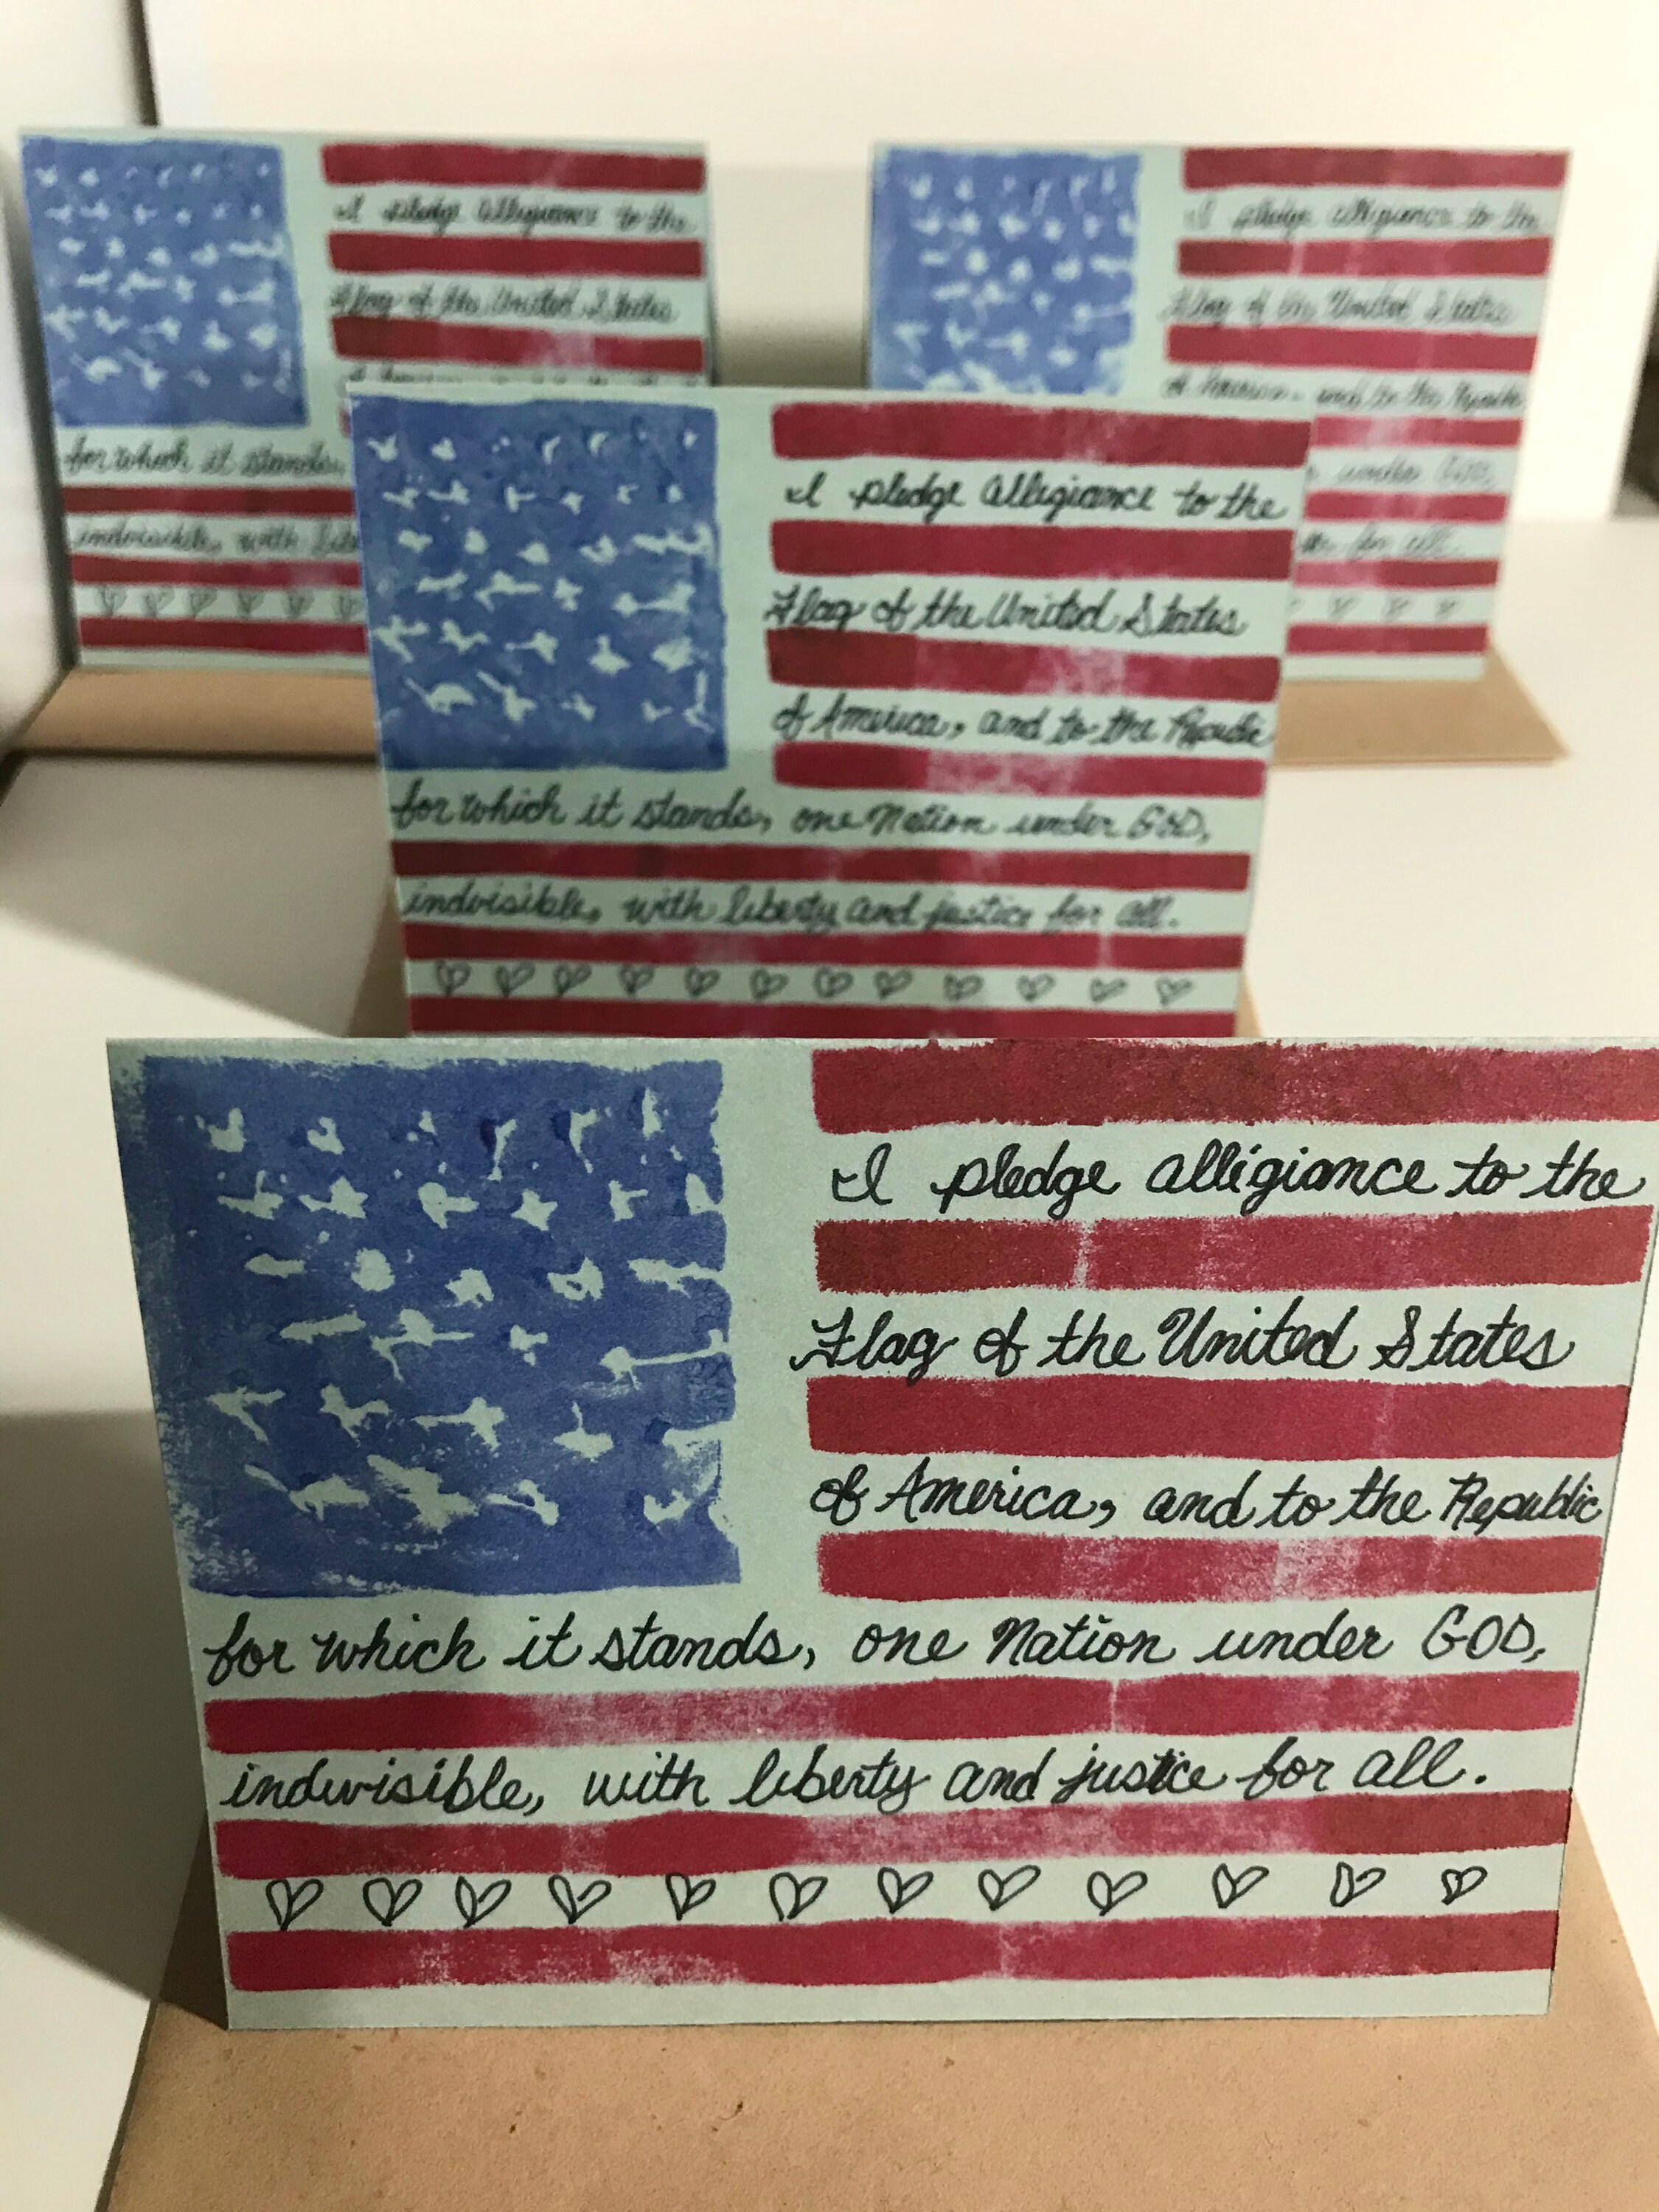 I pledge allegiance to the
Flag of the United States
for which it stands,
indivisible, with
I pledge allegiance to the
Flag of the United States
of America, and to the Republic
under GOD,
for all.
I pledge allegiance to the
Flag of the United States
of America, and to the Republic
for which it stands, one Nation under GOD,
indivisible, with liberty and justice for all.
I pledge alligiance to the
Flag of the United States
of America, and to the Republic
for which it stands, one Nation under GOD,
indivisible, with liberty and justice for all.